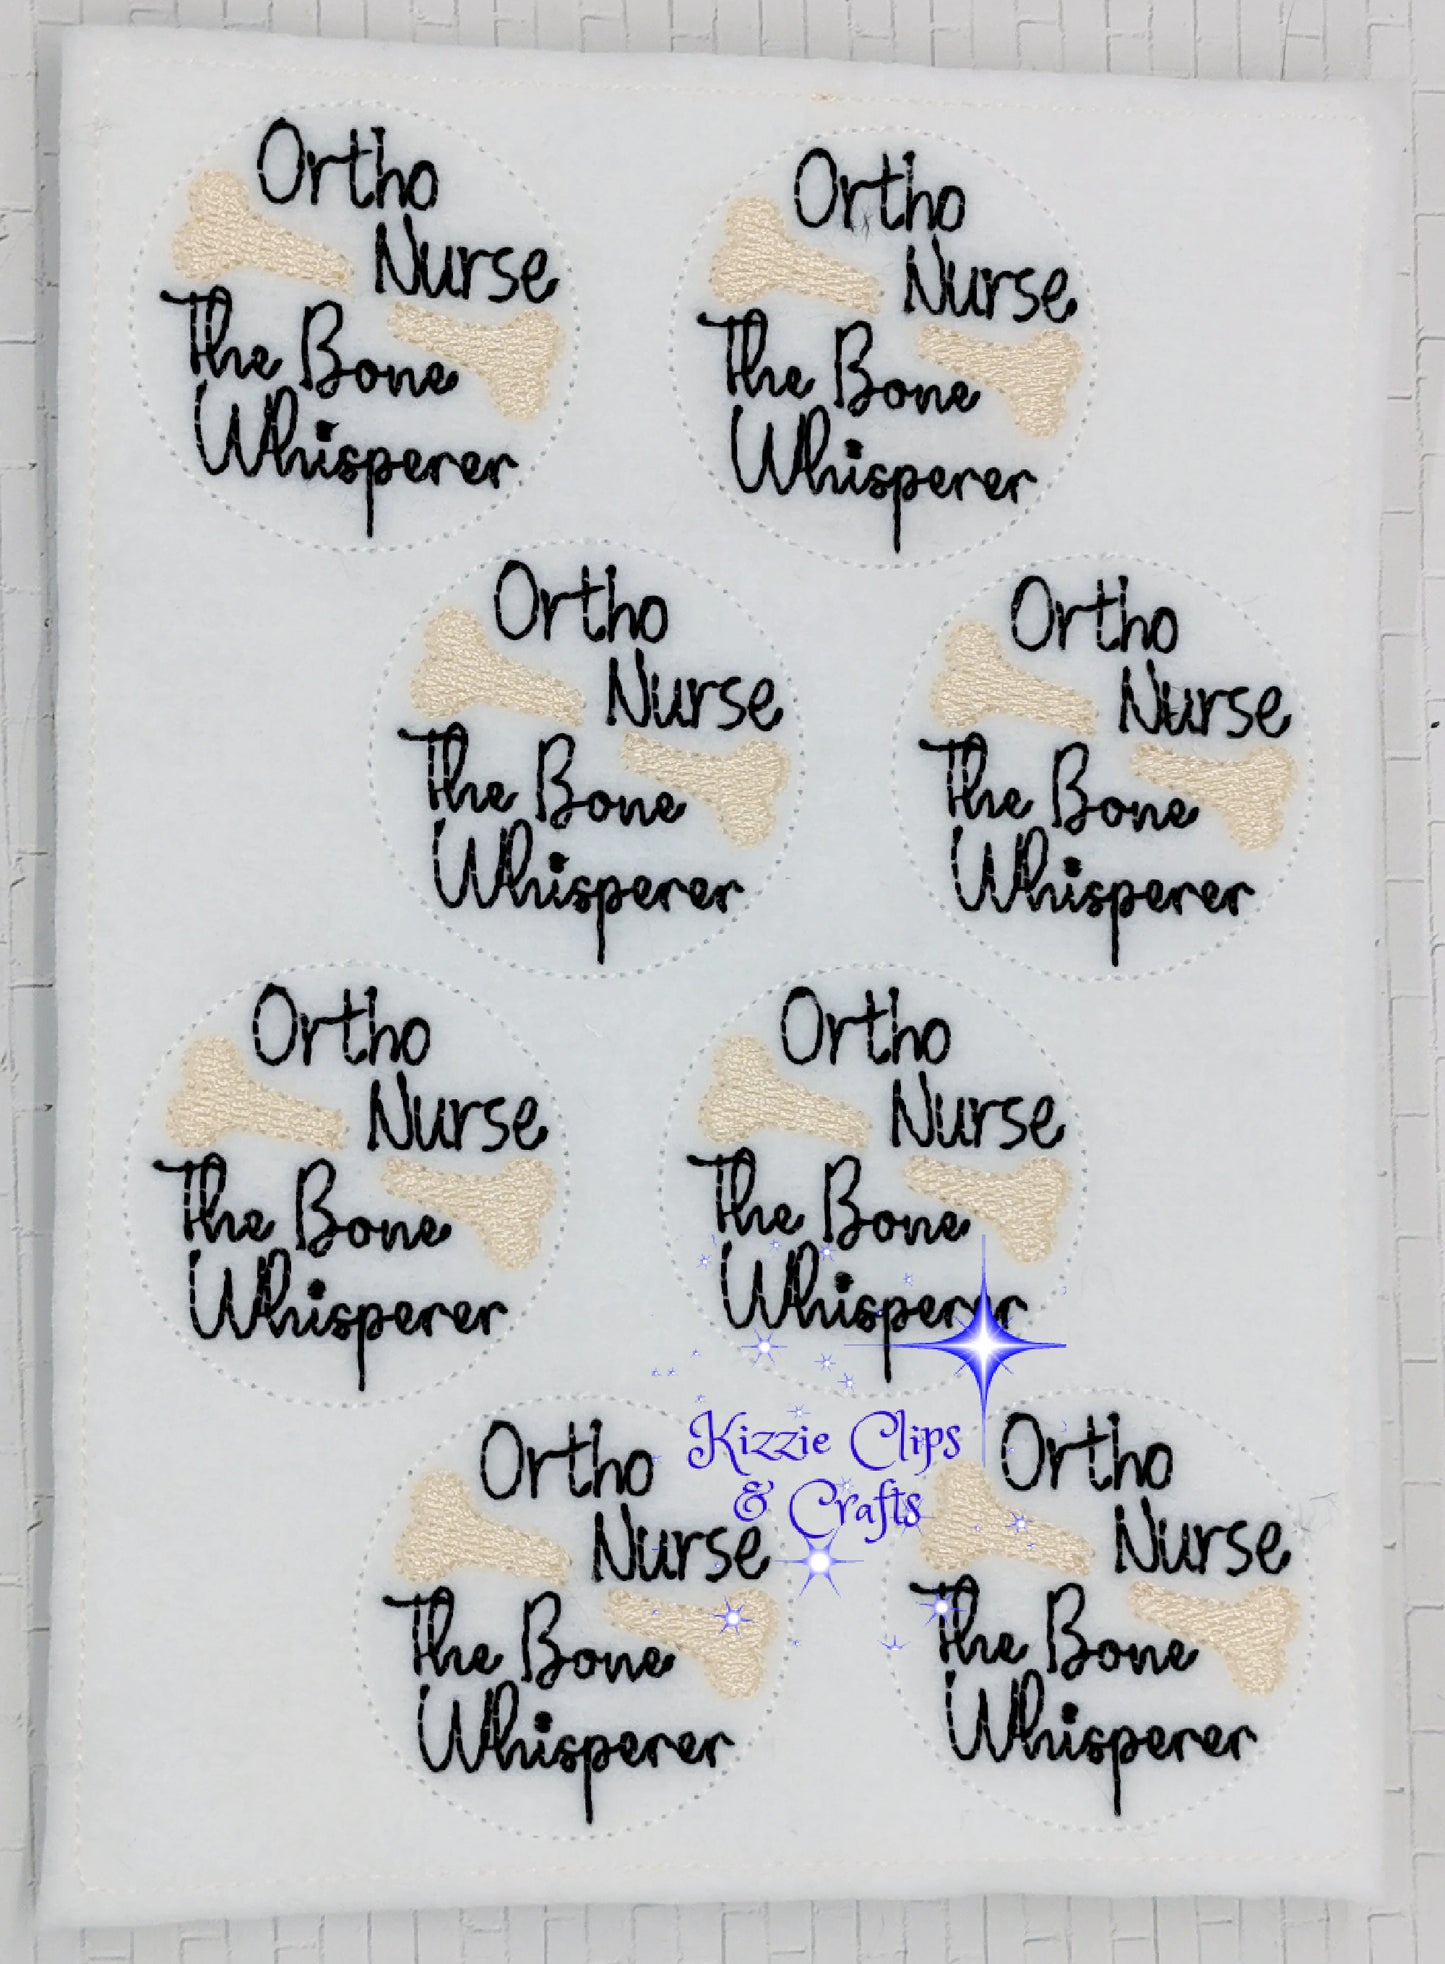 Ortho
Nurse
The Bone
Whisperer
Ortho
Nurse
The Bone
Whisperer
Ortho
Nurse
The Bone
Whisperer
Ortho
Nurse
The Bone
Whisperer
Ortho
Nurse
The Bone
Whisperer
Ortho
Nurse
The Bone
Whisperer
Kizzie Clips
& Crafts
Ortho
Nurse
The Bone
Whisperer
Ortho
Nurse
The Bone
Whisperer